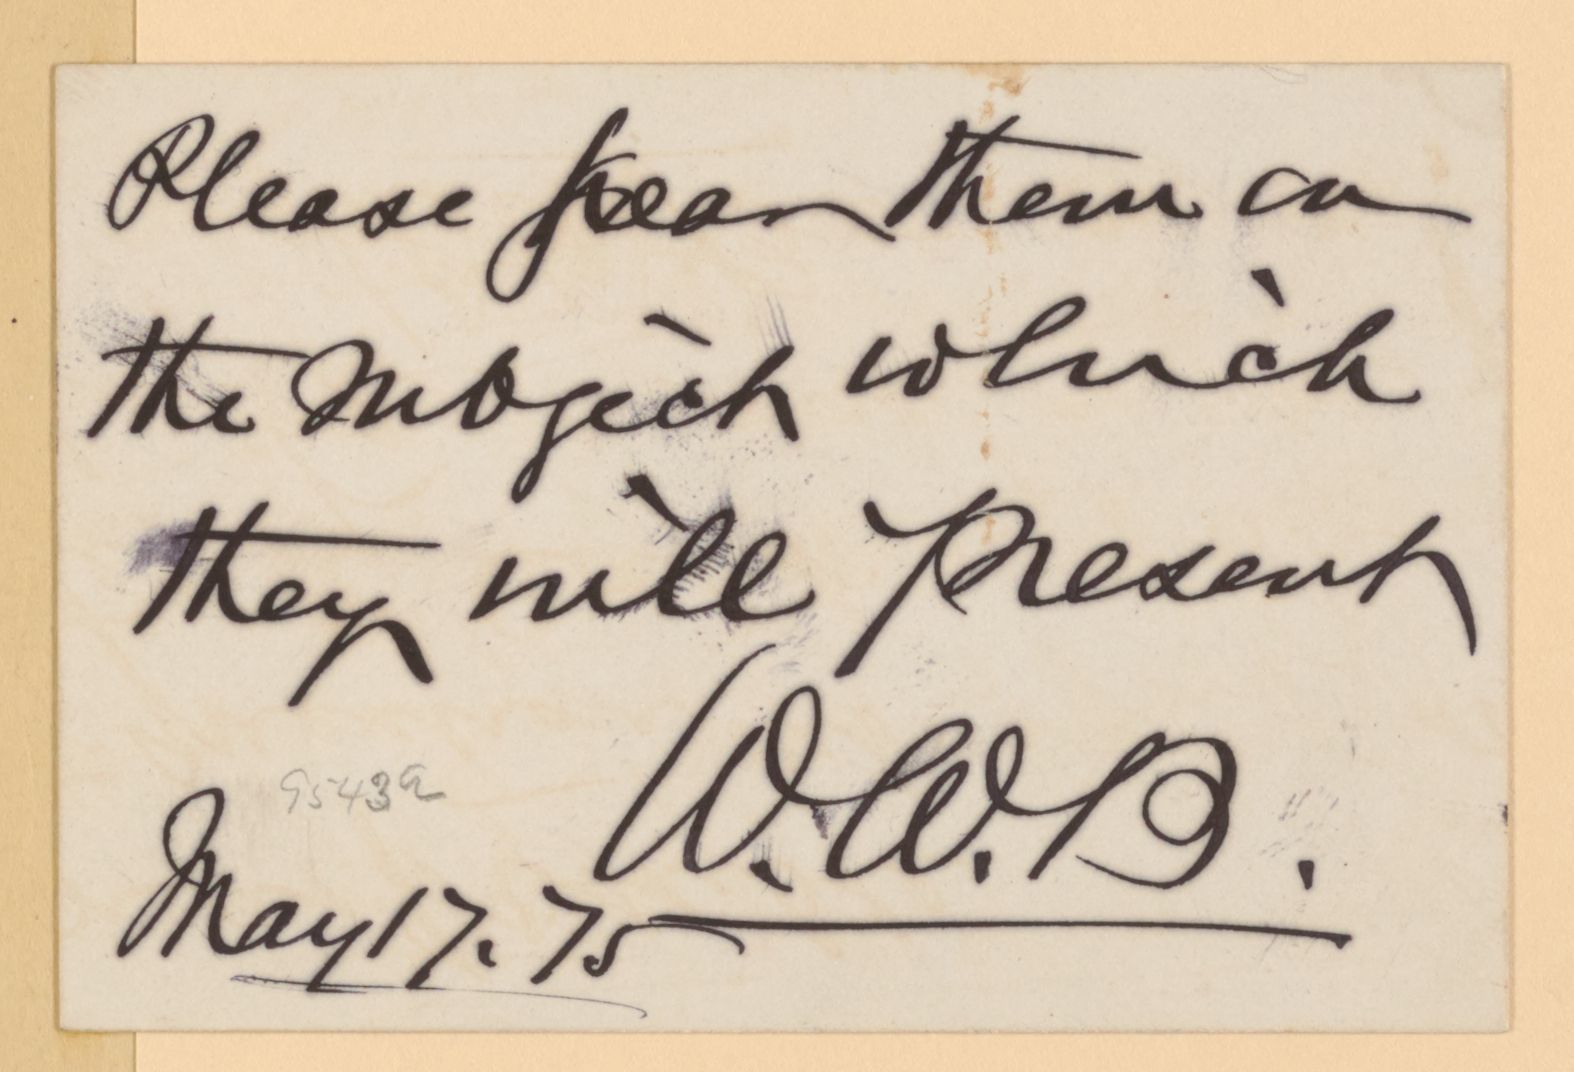 Please hear them on
the subject which
they will present
W. W. B.
95432
May 17. 75